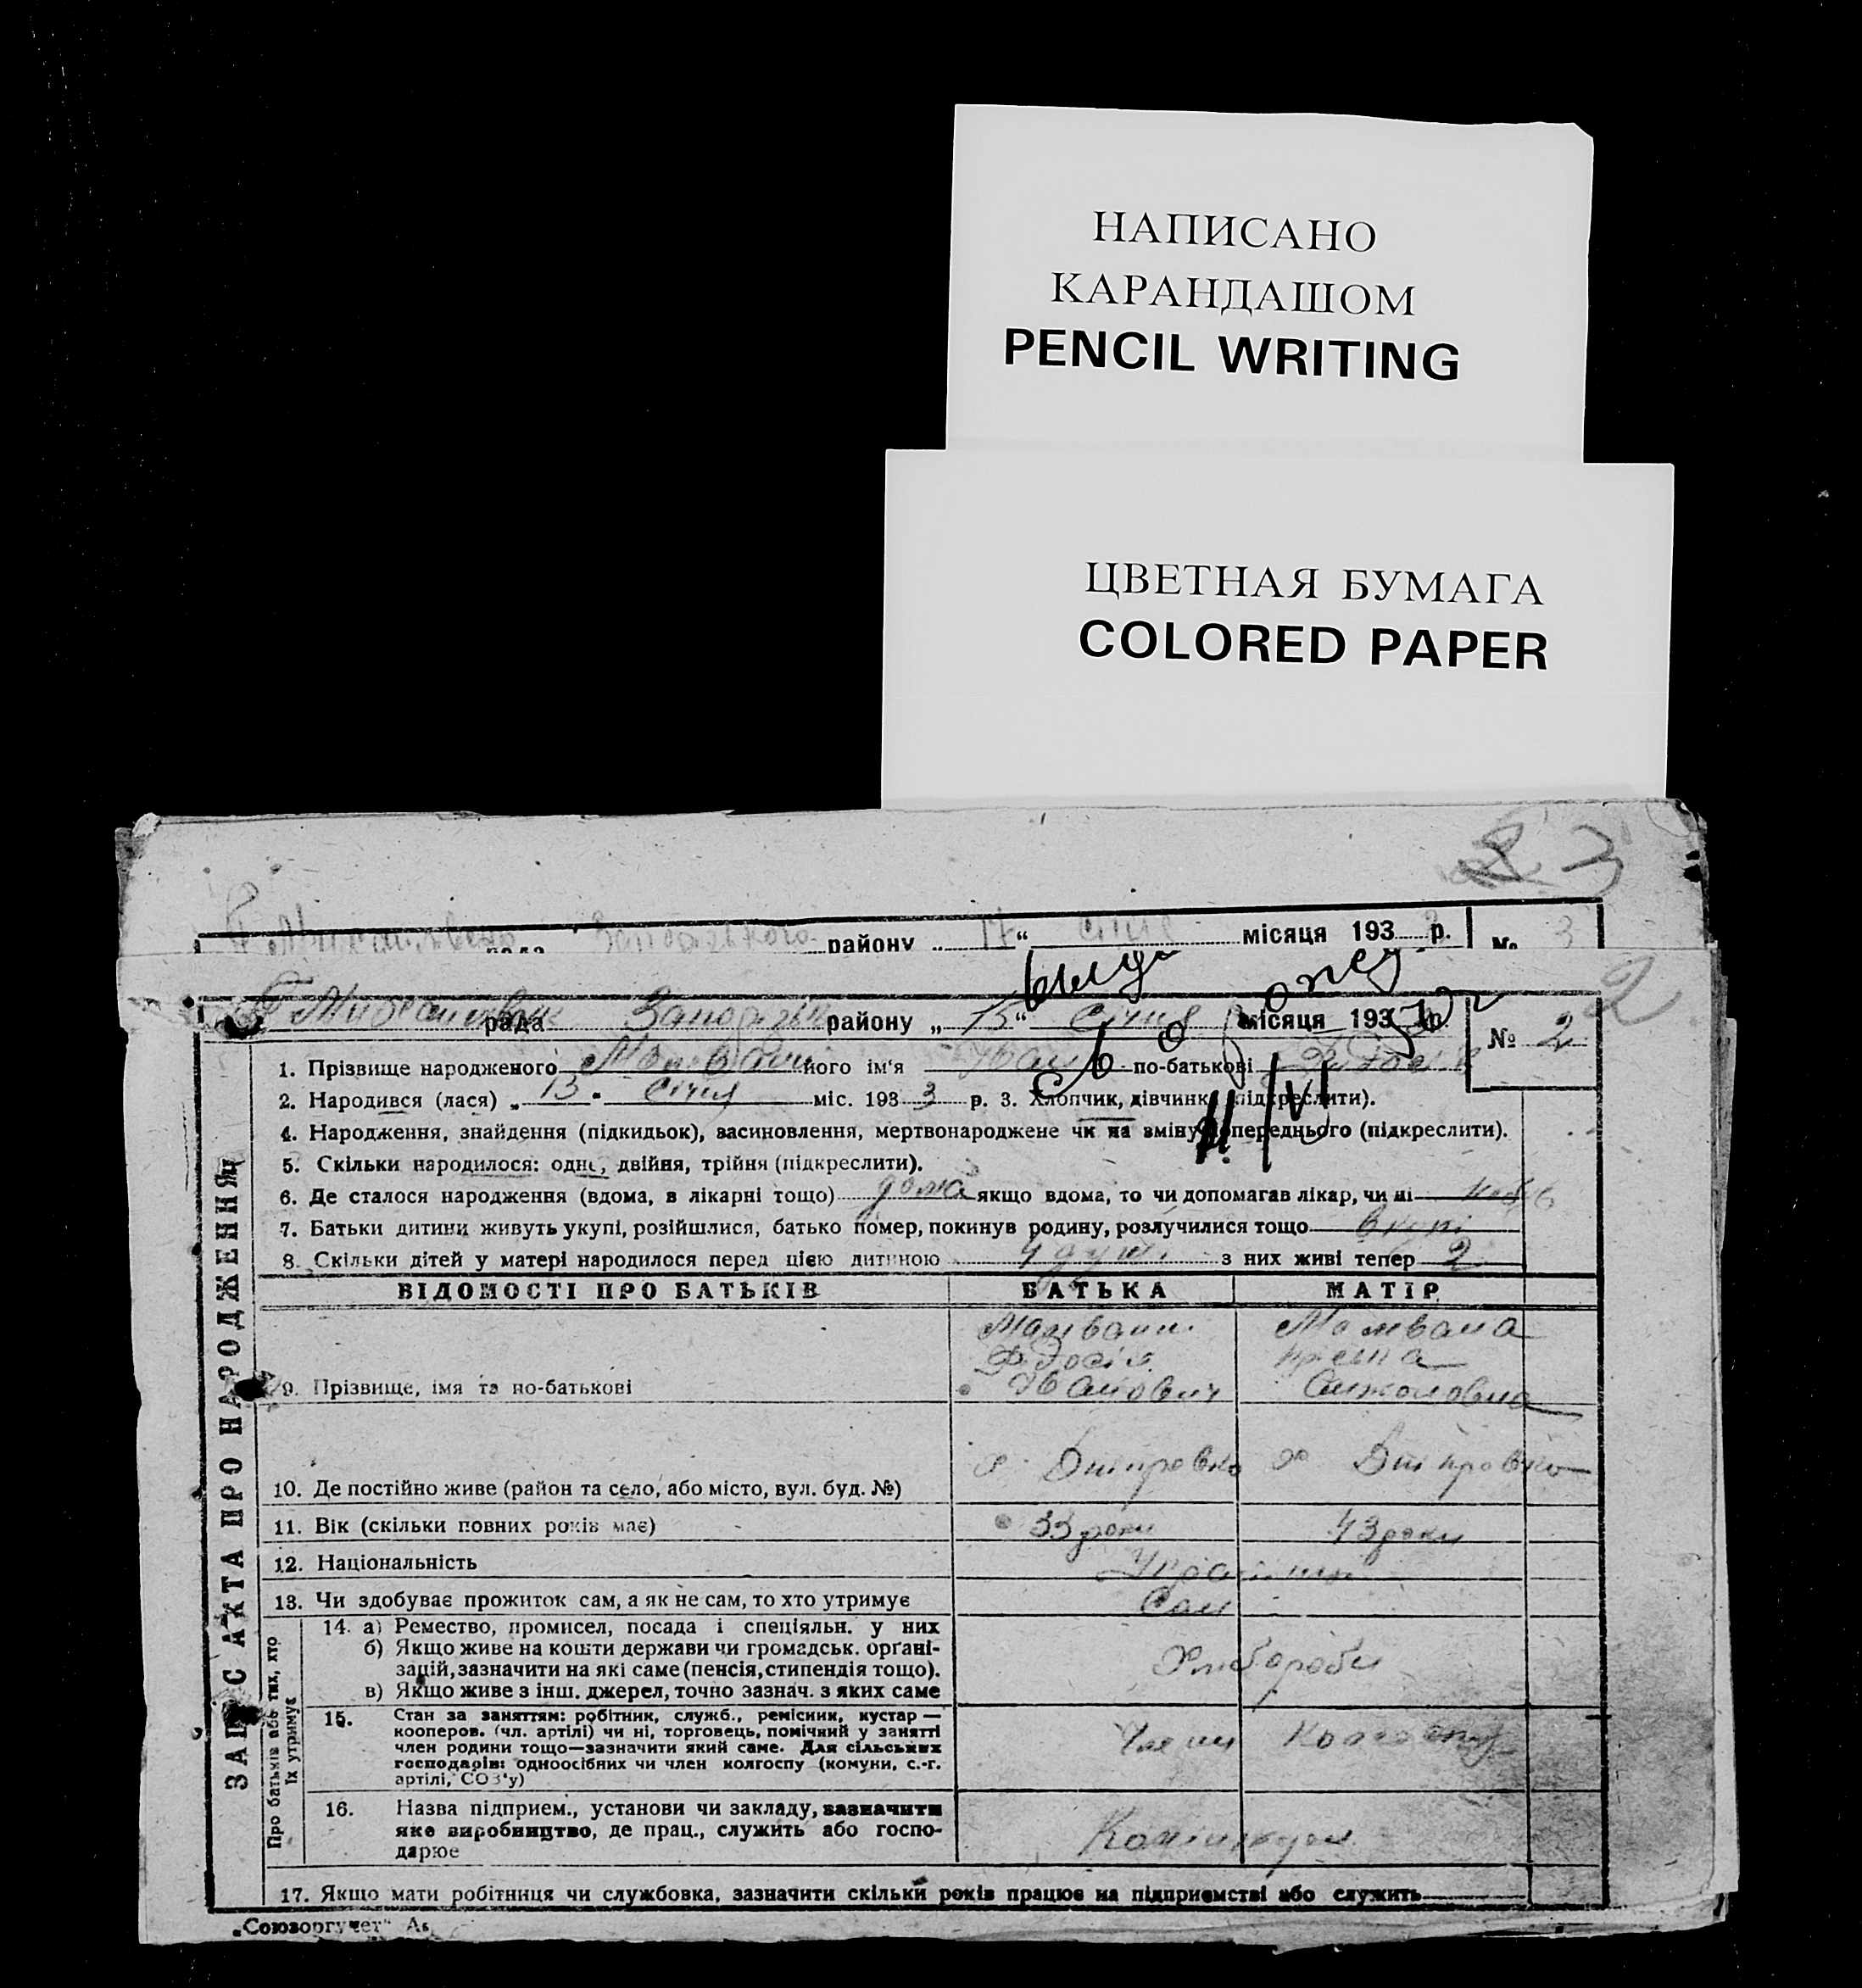 НАПИСАНО
КАРАНДАШОМ
PENCIL WRITING
ЦВЕТНАЯ БУМАГА
COLORED PAPER
3
району „ 17 “ січня місяця 193 3 р. № 3
2
рада району „ 15 “ січня місяця 193 р. № 2
1. Прізвище народженого його ім‘я Іван по-батькові
2. Народився (лася) „ 13 “ січня міс. 193 3 р. 3. Хлопчик, дівчинка (підкреслити).
4. Народження, знайдення (підкидьок), засиновлення, мертвонароджене чи на зміну попереднього (підкреслити).
5. Скільки народилося: одне, двійня, трійня (підкреслити).
6. Де сталося народження (вдома, в лікарні тощо) дома якщо вдома, то чи допомагав лікар, чи ні
7. Батьки дитини живуть укупі, розійшлися, батько помер, покинув родину, розлучилися тощо вкупі
8. Скільки дітей у матері народилося перед цією дитиною 4 з них живі тепер 2
ЗАПИС АКТА ПРО НАРОДЖЕННЯ
ВІДОМОСТІ ПРО БАТЬКІВ БАТЬКА МАТІР
9. Прізвище, імя та по-батькові Іванович
10. Де постійно живе (район та село, або місто, вул. буд. №) х. Дніпровка х Дніпровка
11. Вік (скільки повних років має) 33 роки 43 роки
12. Національність
13. Чи здобуває прожиток сам, а як не сам, то хто утримує Сам
Про батьків або тих, хто їх утримує
14. а) Ремество, промисел, посада і спеціяльн. у них
б) Якщо живе на кошти держави чи громадськ. органі-
зацій, зазначити на які саме (пенсія, стипендія тощо).
в) Якщо живе з інш. джерел, точно зазнач. з яких саме
Хлібороби
15. Стан за заняттям: робітник, служб., ремісник, кустар —
кооперов. (чл. артілі) чи ні, торговець, помічний у занятті
член родини тощо—зазначити який саме. Для сільських
господарів: одноосібних чи член колгоспу (комуни, с.-г.
артілі, СОЗ‘у)
Члени Колгоспу
16. Назва підприєм., установи чи закладу, зазначити
яке виробництво, де прац., служить або госпо-
дарює
17. Якщо мати робітниця чи службовка, зазначити скільки років працює на підприємстві або служить
„Союзоргучет“